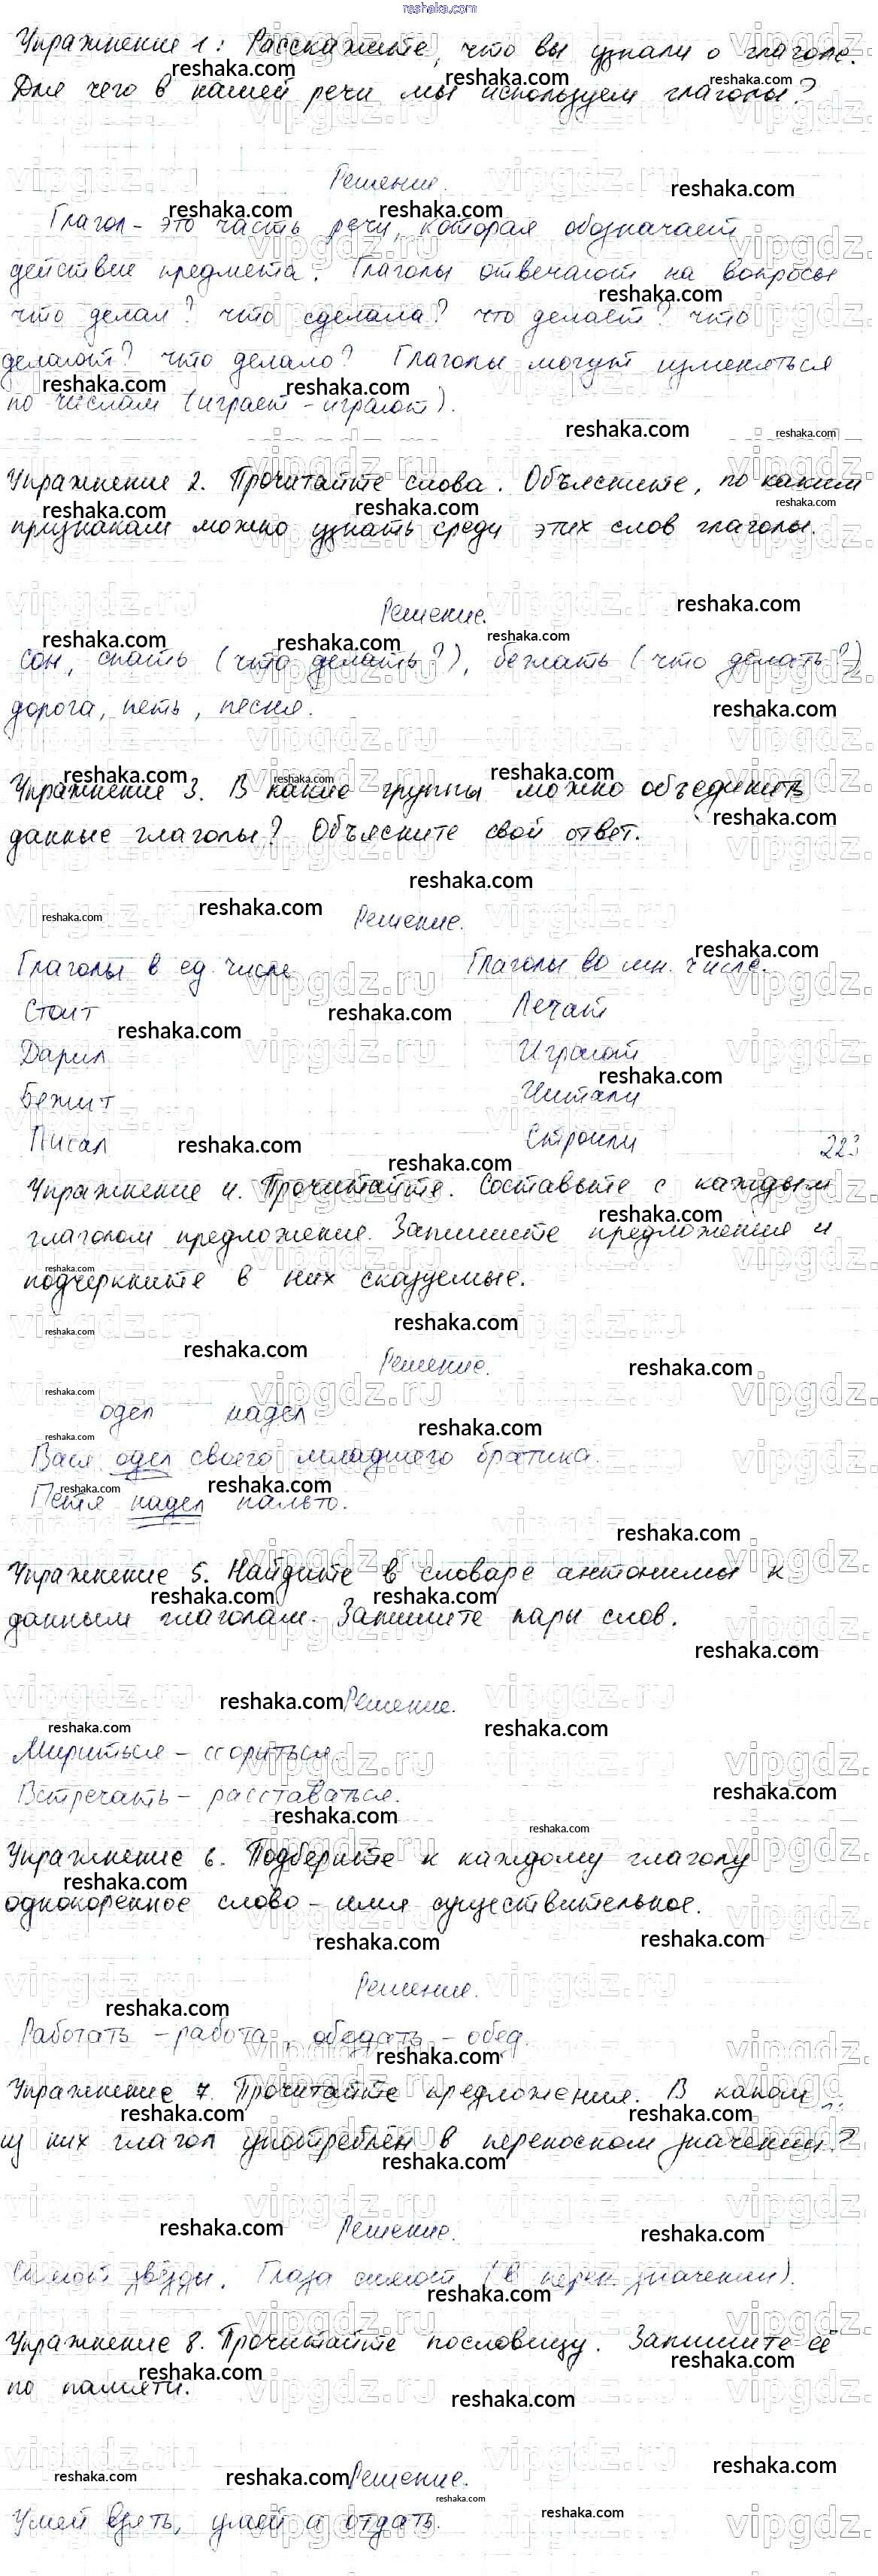 reshaka.com
Упражнение 1: Расскажите, что вы узнали о глаголе.
Для чего в нашей речи мы используем глаголы?
Решение.
Глагол - это часть речи, которая обозначает
действие предмета. Глаголы отвечают на вопросы
что делал? что сделала? что делает? что
делают? что делало? Глаголы могут изменяться
по числам (играет - играют).
Упражнение 2. Прочитайте слова. Объясните, по каким
признакам можно узнать среди этих слов глаголы.
Решение.
Сон, спать (что делать?), бежать (что делать?)
дорога, петь, песня.
Упражнение 3. В какие группы можно объединить
данные глаголы? Объясните свой ответ.
Решение.
Глаголы в ед. числе Глаголы во мн. числе.
Стоит Лечат
Дарил Играют
Бежит Читали
Писал Строили 223
Упражнение 4. Прочитайте. Составьте с каждым
глаголом предложение. Запишите предложения и
подчеркните в них сказуемые.
Решение.
одел надел
Вася одел своего младшего братика.
Петя надел пальто.
Упражнение 5. Найдите в словаре антонимы к
данным глаголам. Запишите пары слов.
Решение.
Мириться - ссориться
Встречать - расставаться.
Упражнение 6. Подберите к каждому глаголу
однокоренное слово - имя существительное.
Решение.
Работать - работа, обедать - обед.
Упражнение 7. Прочитайте предложения. В каком
из них глагол употреблён в переносном значении?
Решение.
Сияют звёзды. Глаза сияют (в перен. значении).
Упражнение 8. Прочитайте пословицу. Запишите её
по памяти.
Решение.
Умей взять, умей и отдать.